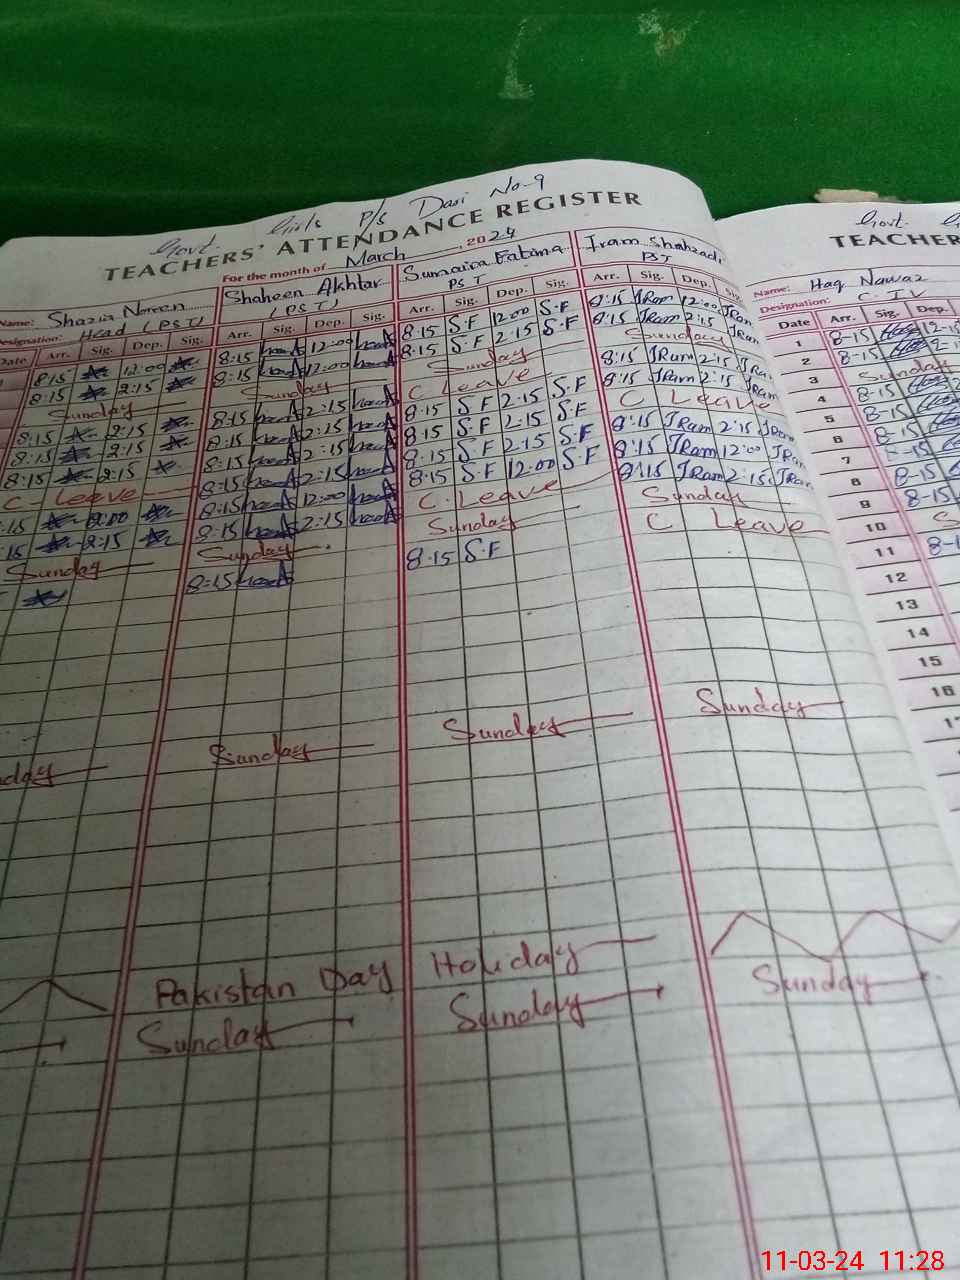 Govt. Girls P/s Dasi No-9
TEACHERS' ATTENDANCE REGISTER
For the month of March, 2024
Name: Shazia Noreen
Designation: Head (PST)
Date Arr. Sig. Dep. Sig.
8:15 12:00
8:15 2:15
Sunday
8:15 2:15
8:15 2:15
8:15 2:15
C Leave
:15 12:00
15 2:15
Sunday
day
Shaheen Akhtar
(PST)
Arr. Sig. Dep. Sig.
8:15 12:00
8:15 12:00
Sunday
8:15 2:15
8:15 2:15
8:15 2:15
8:15 2:15
8:15 12:00
8:15 2:15
Sunday
8:15
Sunday
Sumaira Fatima
PST
Arr. Sig. Dep. Sig.
8:15 S.F 12:00 S.F
8:15 S.F 2:15 S.F
Sunday
C Leave
8:15 S.F 2:15 S.F
8:15 S.F 2:15 S.F
8:15 S.F 2:15 S.F
8:15 S.F 12:00 S.F
C. Leave
Sunday
8:15 S.F
Sunday
Iram Shahzadi
PST
Arr. Sig. Dep. Sig.
8:15 IRam 12:00 IRam
8:15 IRam 2:15 IRam
Sunday
8:15 IRam 2:15 IRam
8:15 IRam 2:15 IRam
C Leave
8:15 IRam 2:15 IRam
8:15 IRam 12:00 IRam
8:15 IRam 2:15 IRam
Sunday
C Leave
Sunday
Pakistan Day Holiday
Sunday Sunday Sunday
Govt.
TEACHER
Name: Haq Nawaz
Designation: C. IV
Date Arr. Sig. Dep.
1 8-15 12-15
2 8-15
3 Sunday
4 8-15
5 8-15
6 8-15
7 8-15
8 8-15
9 8-15
10
11 8-1
12
13
14
15
16
11-03-24 11:28